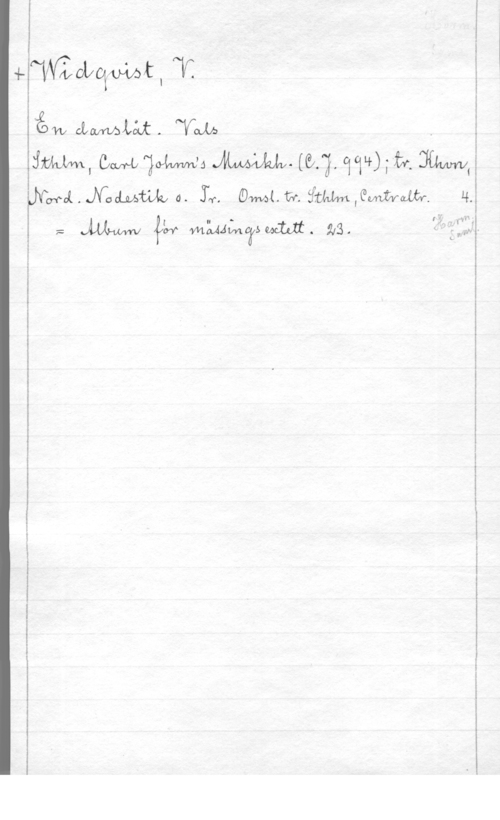 + Widqvist, V.
En danslåt. Vals
Sthlm, Carl Johnn's Musikh. (C.J. 994); tr. Khvn,
Nord. Nodestik o. Tr. Omsl. tr. Sthlm, Centraltr. 4.
= Album för mässingsextett. 23.